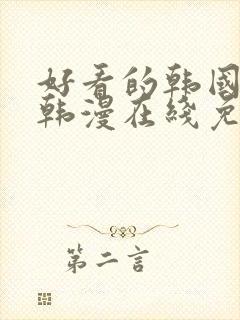 好看的韩国
韩漫在线免
第二言